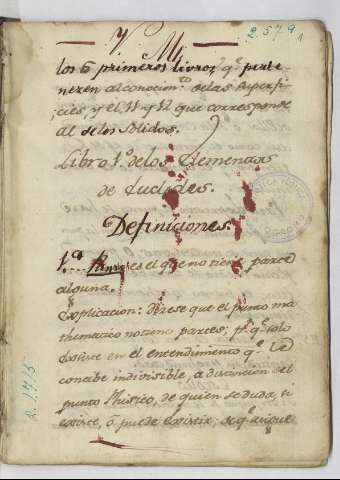 2.579
Y M
los 6 primeros livros, q.e perte
nezen al conocim.to de las superfi
cies, y el 11 y 12 que corresponde
al de los solidos.
Libro 1.o de los Elementos
de Euclides.
Definiciones.
1.a Punto es el que no tiene parte
alguna.
Explicacion: Dize se que el punto ma
thematico no tiene partes; p.r q.e solo
existe en el entendimiento q.e le
concibe indivisible, a distincion del
punto Phisico, de quien se duda, si
existe, ó puede existir, se q.e
R. 1715